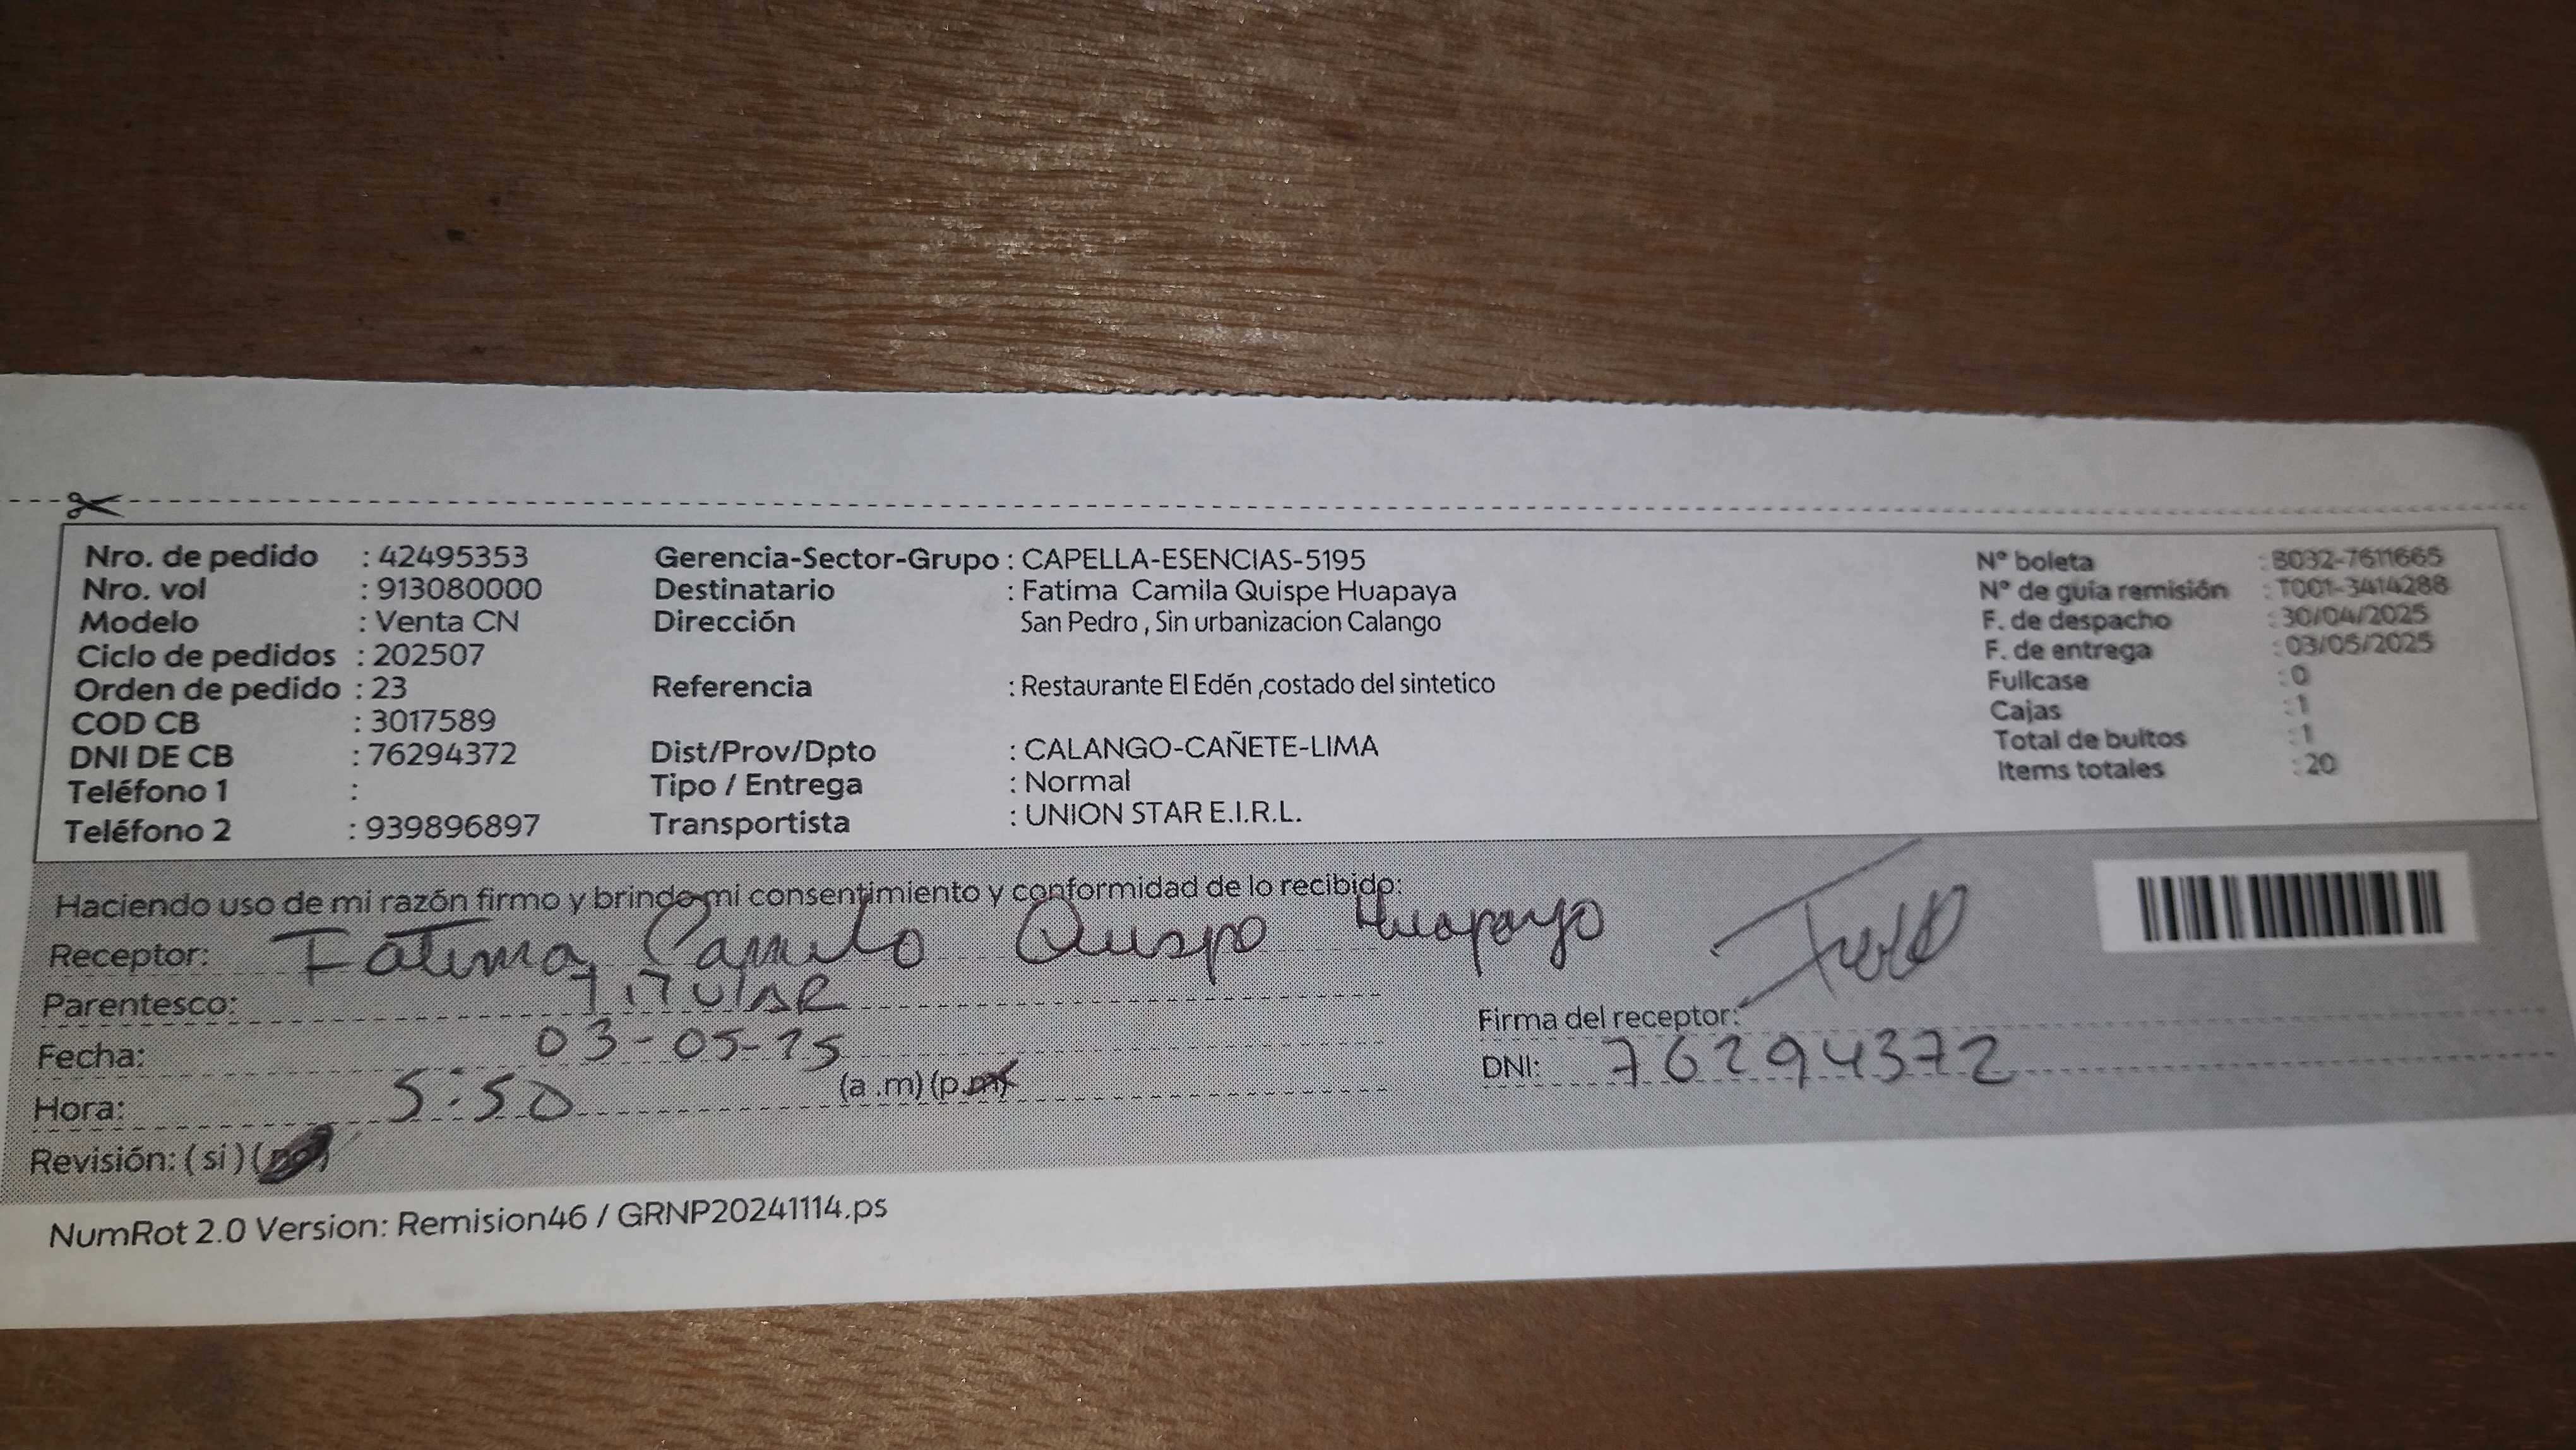 Nro. de pedido : 42495353
Nro. vol : 913080000
Modelo : Venta CN
Ciclo de pedidos : 202507
Orden de pedido : 23
COD CB : 3017589
DNI DE CB : 76294372
Teléfono 1 :
Teléfono 2 : 939896897
Gerencia-Sector-Grupo : CAPELLA-ESENCIAS-5195
Destinatario : Fatima Camila Quispe Huapaya
Dirección San Pedro , Sin urbanizacion Calango
Referencia : Restaurante El Edén ,costado del sintetico
Dist/Prov/Dpto : CALANGO-CAÑETE-LIMA
Tipo / Entrega : Normal
Transportista : UNION STAR E.I.R.L.
N° boleta : B032-7611665
N° de guia remisión : T001-3414288
F. de despacho : 30/04/2025
F. de entrega : 03/05/2025
Fullcase : 0
Cajas : 1
Total de bultos : 1
Items totales : 20
Haciendo uso de mi razón firmo y brindo mi consentimiento y conformidad de lo recibido:
Receptor: Fatima Camila Quispe Huapaya
Parentesco: TITULAR
Fecha: 03-05-25
Hora: 5:50 (a .m) (p.m)
Revisión: ( si ) (no)
Firma del receptor:
DNI: 76294372
NumRot 2.0 Version: Remision46 / GRNP20241114.ps